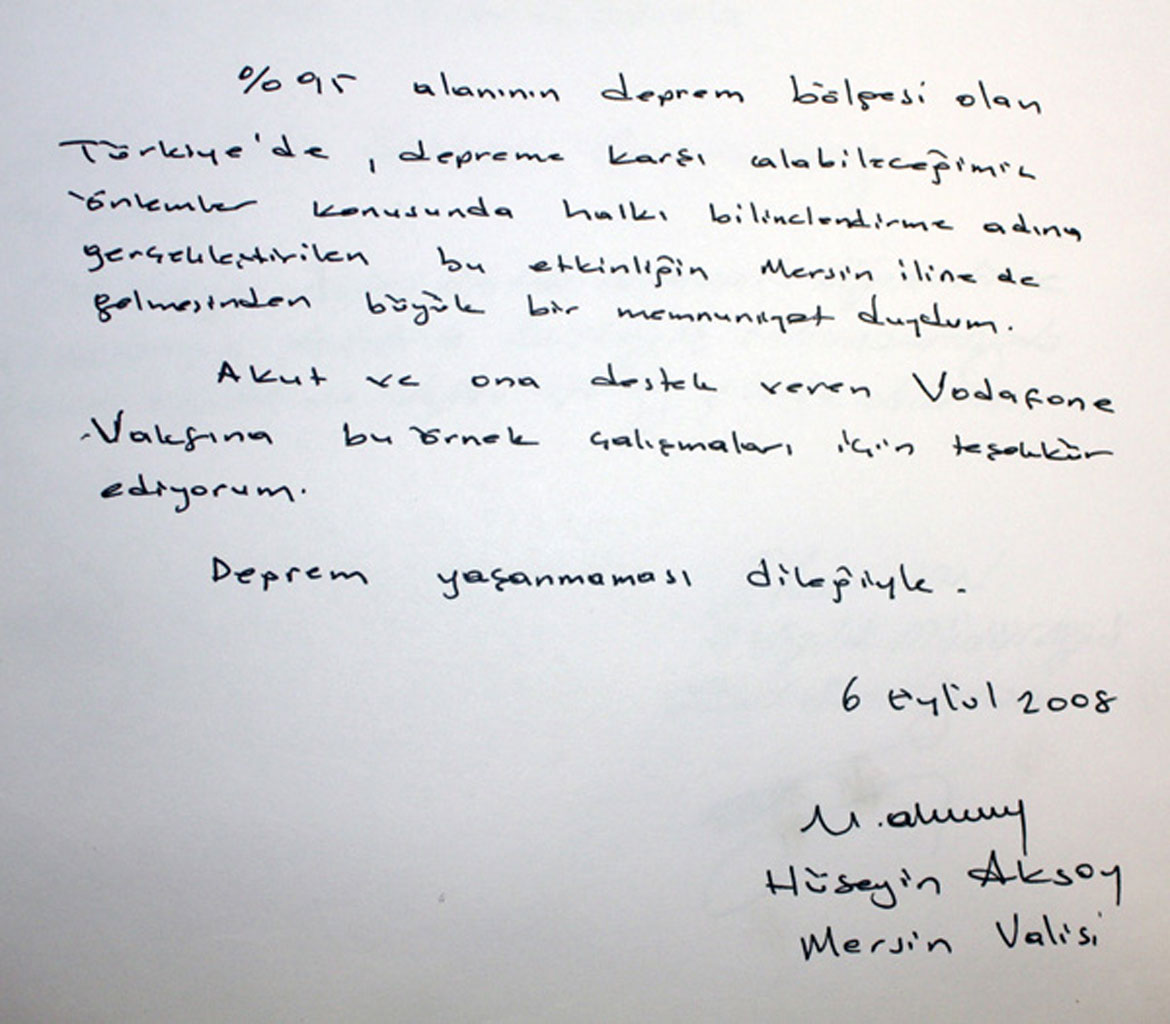 %95 alanının deprem bölgesi olan
Türkiye'de, depreme karşı alabileceğimiz
önlemler konusunda halkı bilinclendirme adına
gerçekleştirilen bu etkinliğin Mersin iline de
gelmesinden büyük bir memnuniyet duydum.
Akut ve ona destek veren Vodafone
Vakfına bu örnek çalışmaları için teşekkür
ediyorum.
Deprem yaşanmaması dileğiyle.
6 Eylül 2008
Hüseyin Aksoy
Mersin Valisi